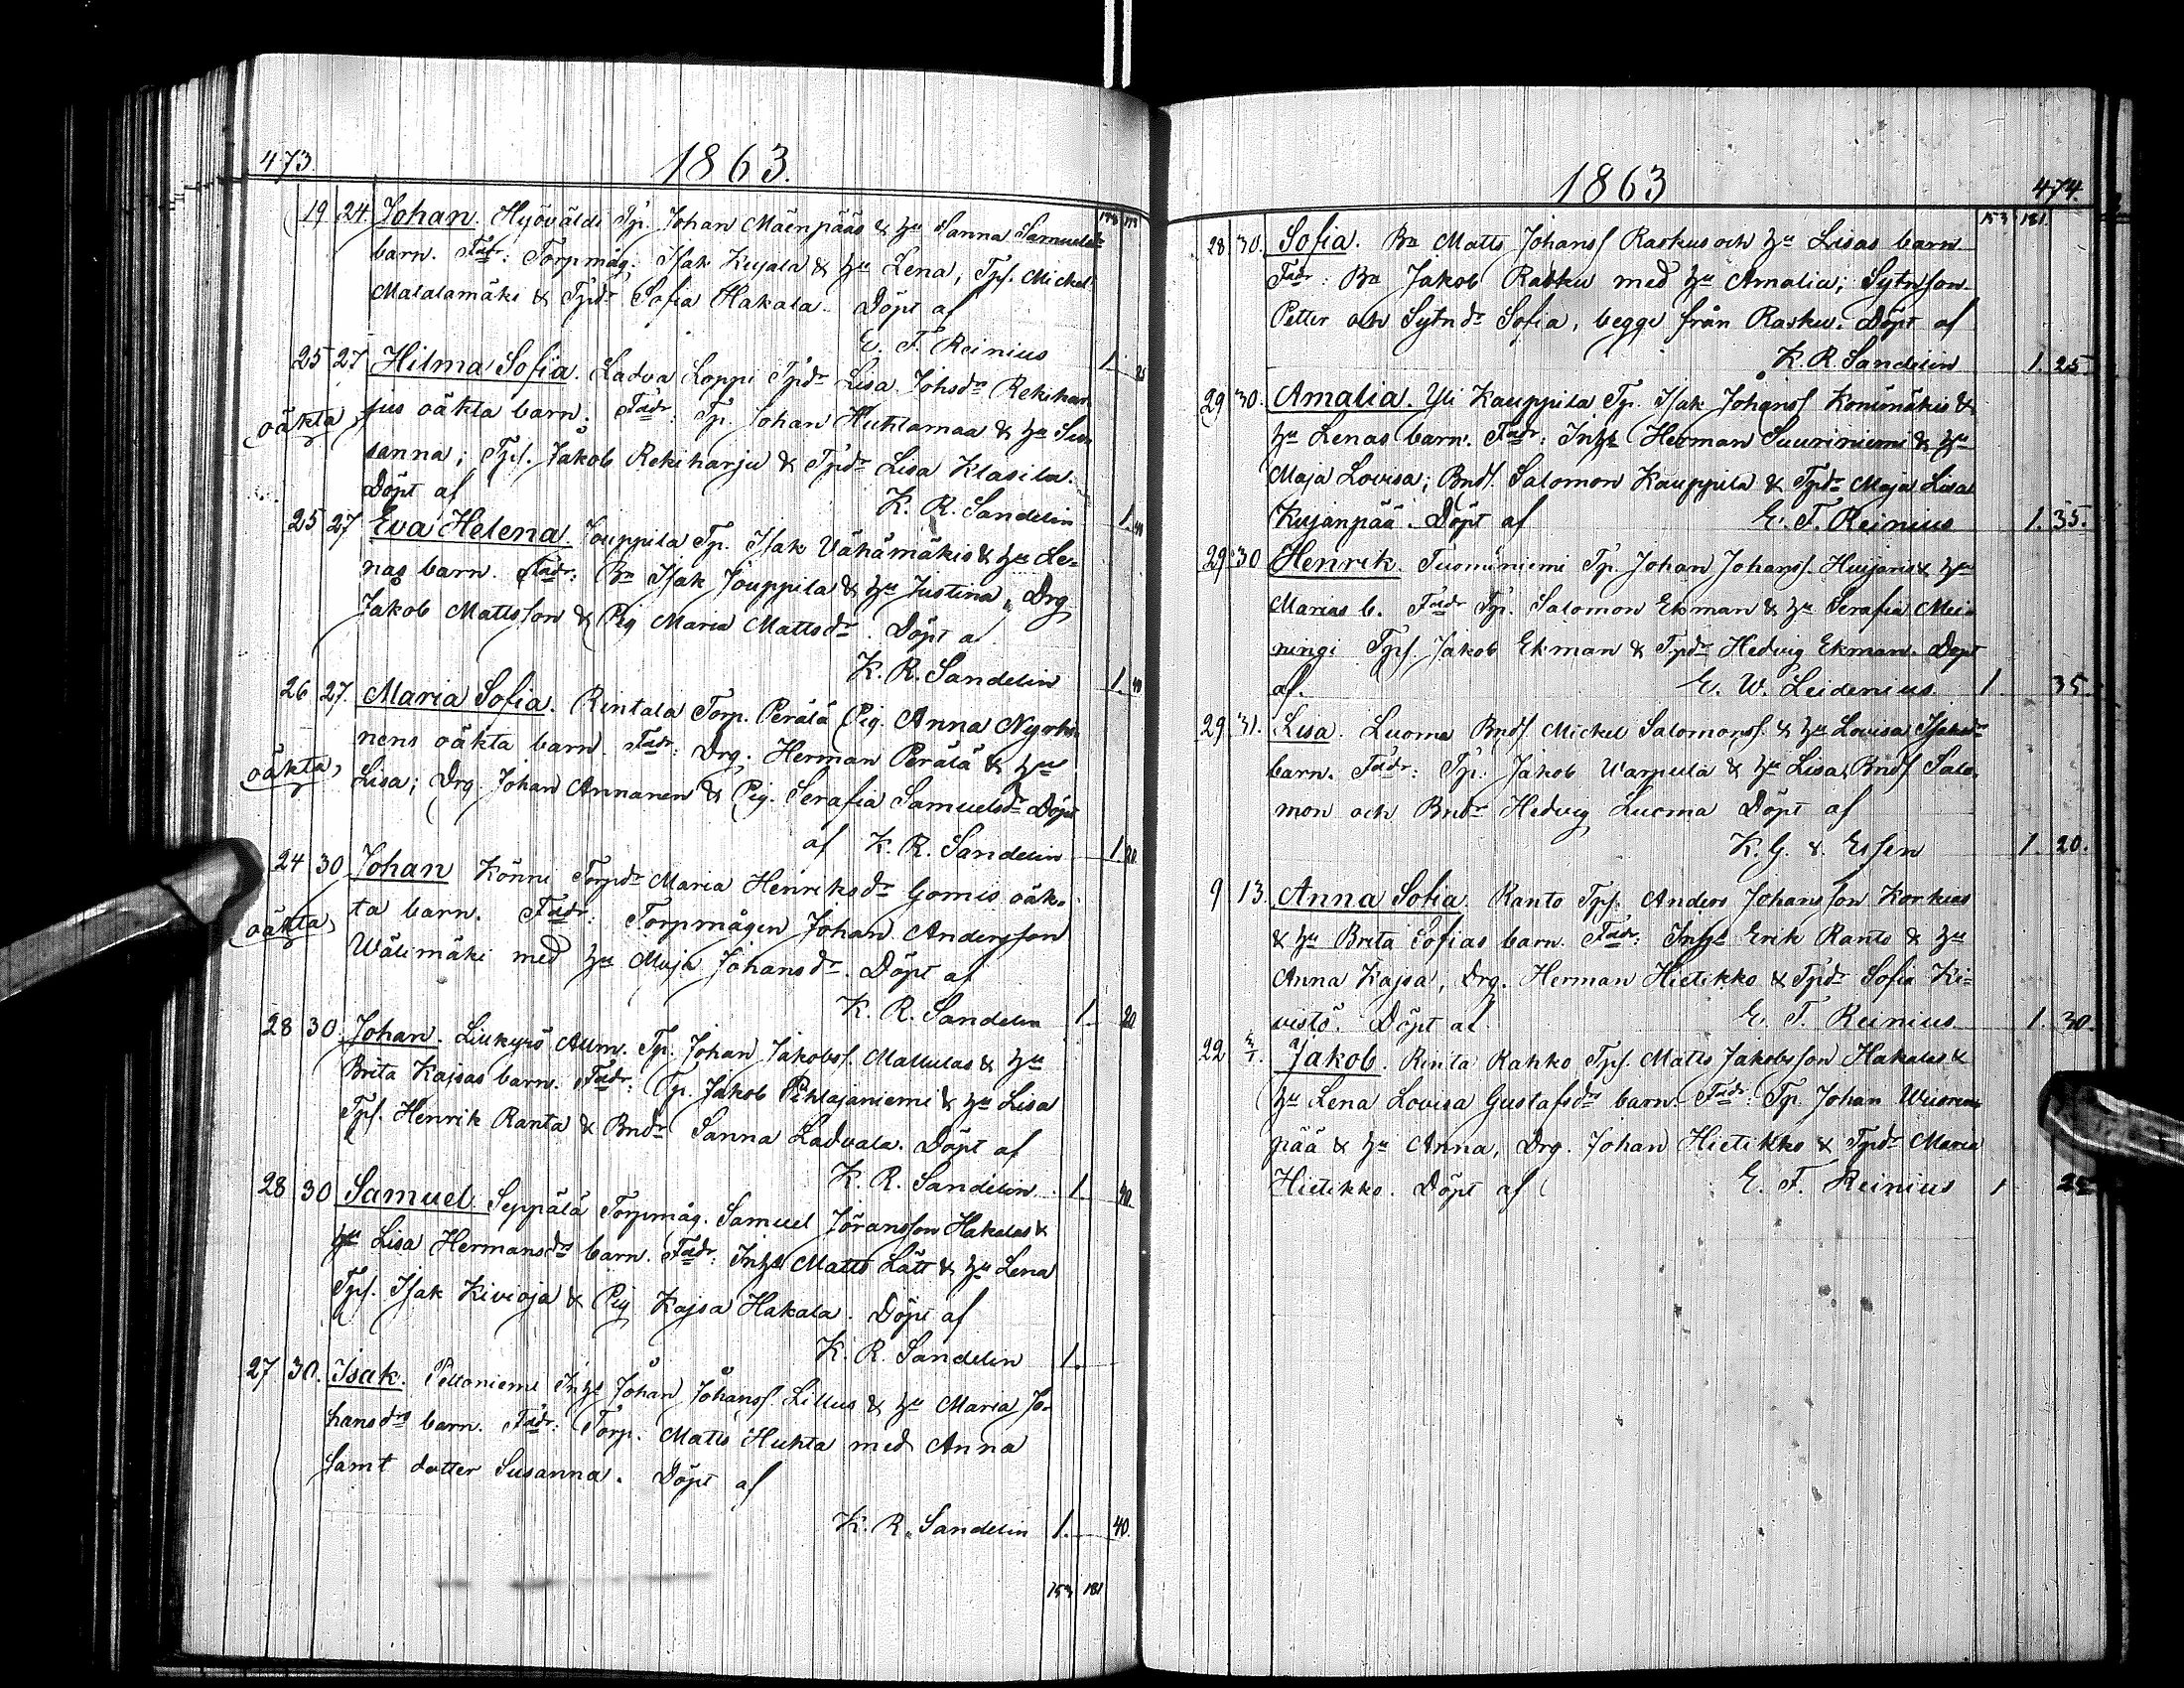 473.
1863.
19 24. Johan. Hyövälds Tp. Johan Mäenpääs & hu Sanna Samuelsds
barn. Fadr: Torpmåg. Isak Kujala & hu Lena, Tps. Mickel
Malalamäki & Tpdr Sofia Hakala. Döpt af
E. F. Reinius 1
25 27 Hilma Sofia. Ladva Loppi Tpdr Lisa Johsdr Rekihar-
oäkta jus oäkta barn. Fadr: Tp. Johan Huhtamaa & hu Su-
sanna; Tps. Jakob Rekiharju & Tpdr Lisa Klasila.
Döpt af K. R. Sandelin 1. 40
25 27 Eva Helena. Jouppila Tp. Isak Vähämäkis & hu Le-
nas barn. Fadr: Bn Isak Jouppila & hu Justina, Drg
Jakob Mattsson & Pig Maria Mattsdr. Döpt af
K. R. Sandelin 1. 40
26 27. Maria Sofia. Rintala Torp. Perälä Pig. Anna
oäkta nens oäkta barn. Fadr: Drg. Herman Perälä & hu
Lisa; Drg. Johan Annanen & Pig. Serafia Samuelsdr Döpt
af K. R. Sandelin 1 20.
24 30 Johan Könni Torpdr Maria Henriksdr Gomis oäk-
oäkta ta barn. Fadr: Torpmågen Johan Andersson
Wälimäki med hu Maja Johansdr. Döpt af
K. R. Sandelin 1. 20
28 30. Johan. Liukyrö Allm. Tp. Johan Jakobss. Mallulas & hu
Brita Kajsas barn. Fadr: Tp. Jakob Pihlajaniemi & hu Lisa
Tps. Henrik Ranta & Bndr Sanna Ladvala. Döpt af
K. R. Sandelin 1. 40.
28 30 Samuel. Seppälä Torpmåg. Samuel Jöransson Hakalas &
hu Lisa Hermansdrs barn. Fadr: Inhs Matts Lätt & hu Lena
Tps. Isak Kivioja & Pig Kajsa Hakala. Döpt af
K. R. Sandelin 1.
27 30. Isak. Peltoniemi Inhs Johan Johanss. Lillus & hu Maria Jo-
hansdrs barn. Fadr: Torp. Matts Huhta med Anna
samt dotter Susanna. Döpt af
K. R. Sandelin 1. 40.
153 181
1863 474.
153 181.
28 30. Sofia. Bn Matts Johanss Raskus och hu Lisas barn
Fadr: Bn Jakob Rasku med hu Amalia; Sytnson
Petter och Sytndr Sofia, begge från Rasku. Döpt af
K. R. Sandelin 1. 25.
29 30. Amalia. Yli Kauppila Tp. Isak Johanss Konömäkis &
hu Lenas barn. Fadr: Inhs Herman Suuriniemi & hu
Maja Lovisa; Bnds. Salomon Kauppila & Tpdr Maja Lisa
Kujanpää. Döpt af E. F. Reinius 1. 35.
29 30 Henrik. Tuominiemi Tp. Johan Johanss. Huijaris & hu
Marias b. Fadr Tp. Salomon Ekman & hu Serafia Mei-
ningi Tps. Jakob Ekman & Tpdr Hedvig Ekman. Döpt
af. E. W. Leidenius 1 35.
29 31. Lisa. Luoma Bnds. Mickel Salomonss. & hu Lovisa Isaksdr
barn. Fadr: Tp. Jakob Warpula & hu Lisa, Bnds Salo-
mon och Bndr Hedvig Luoma Döpt af
K. G. v. Essen 1. 20.
9 13. Anna Sofia. Ranto Tps. Anders Johansson Korkias
& hu Brita Sofias barn. Fadr: Inhs Erik Ranto & hu
Anna Kajsa, Drg. Herman Hietikko & Tpdr Sofia Ki-
vistö. Döpt af E. F. Reinius 1. 30.
22 Jakob. Rinta Rahko Tps. Matts Jakobsson Hakalas &
hu Lena Lovisa Gustafsdrs barn. Fadr: Tp. Johan
pää & hu Anna, Drg. Johan Hietikko & Tpdr Maria
Hietikko. Döpt af E. F. Reinius 1 25